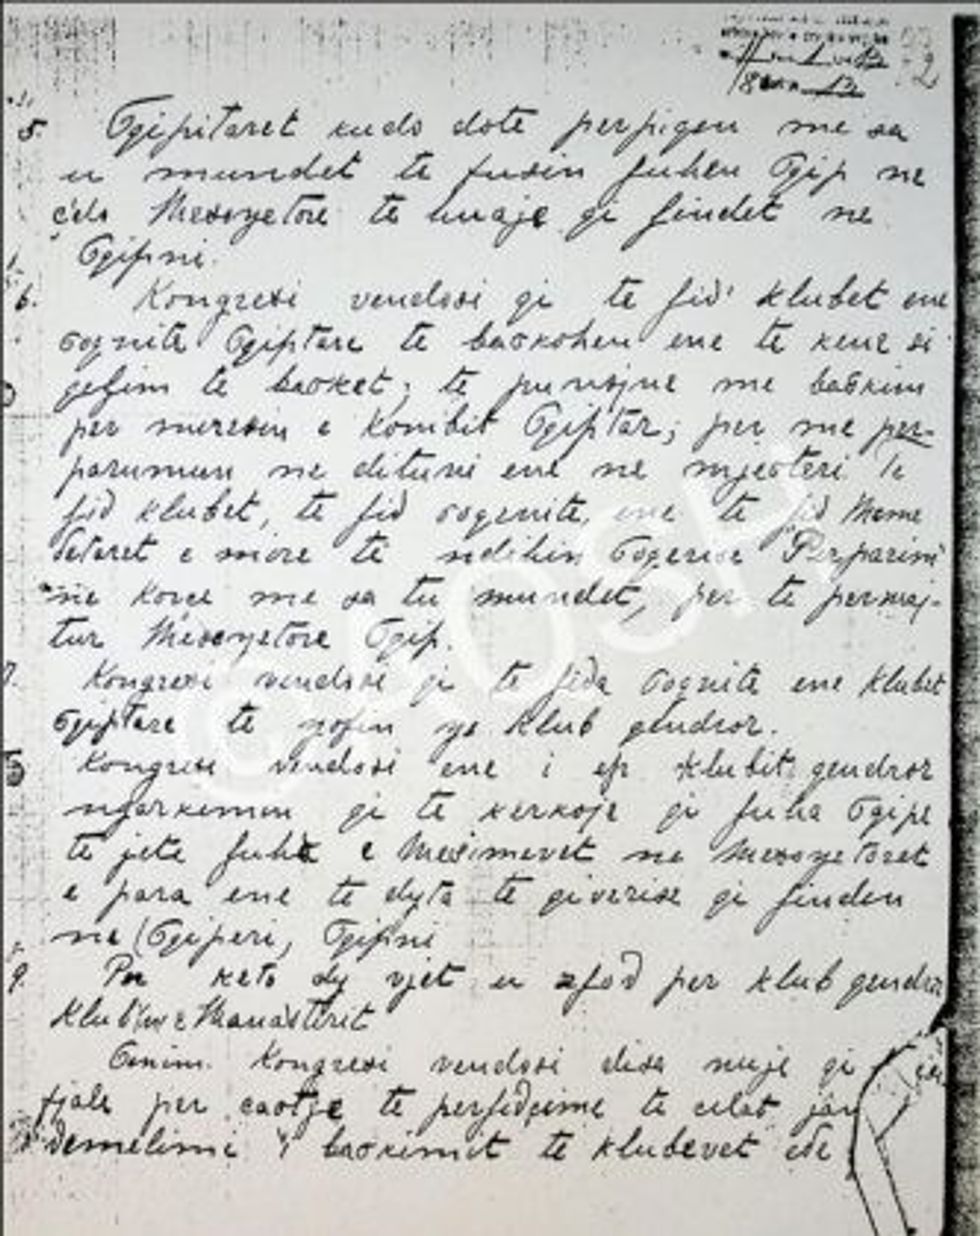 5. Ogipitaret kudo dote perpiqen me sa
u mundet te fusin juhen Ogip ne
çdo Mesonjetore te huaje qi jindet ne
Ogipni.
6. Kongresi vendosi qi te jid' klubet ene
ognite Ogiptare te baskohen ene te kene si
qelim te basket; te punojne me baskim
per miresin e kombit Ogiptar; per me per-
parumun ne dituni ene ne mjesteri Te
jid klubet, te jid sogenite, ene te jid Meme
deteret e mire te ndihin Sogerise Perparimi
ne Korce me sa tu mundet, per te permaj-
tur Mesonjetore Ogip.
7. Kongresi vendosi qi te jida sognite ene klubet
Ogiptare te njofin nje klub qendror.
Kongresi vendosi ene i ep klubit qendror
ngarkimin qi te kerkoje qi juha Ogipe
te jete juha e Mesimevet ne Mesonjetoret
e para ene te dyta te qiverise qi jinden
ne Ogiperi, Ogipni
9. Per keto dy vjet u zjod per klub qendror
Klubi e Manasterit
Kongresi vendosi disa nuje qi
fjale per çastje te perjidçime te cilat jan
demelimi i baskimit te klubevet ede
©AQSH